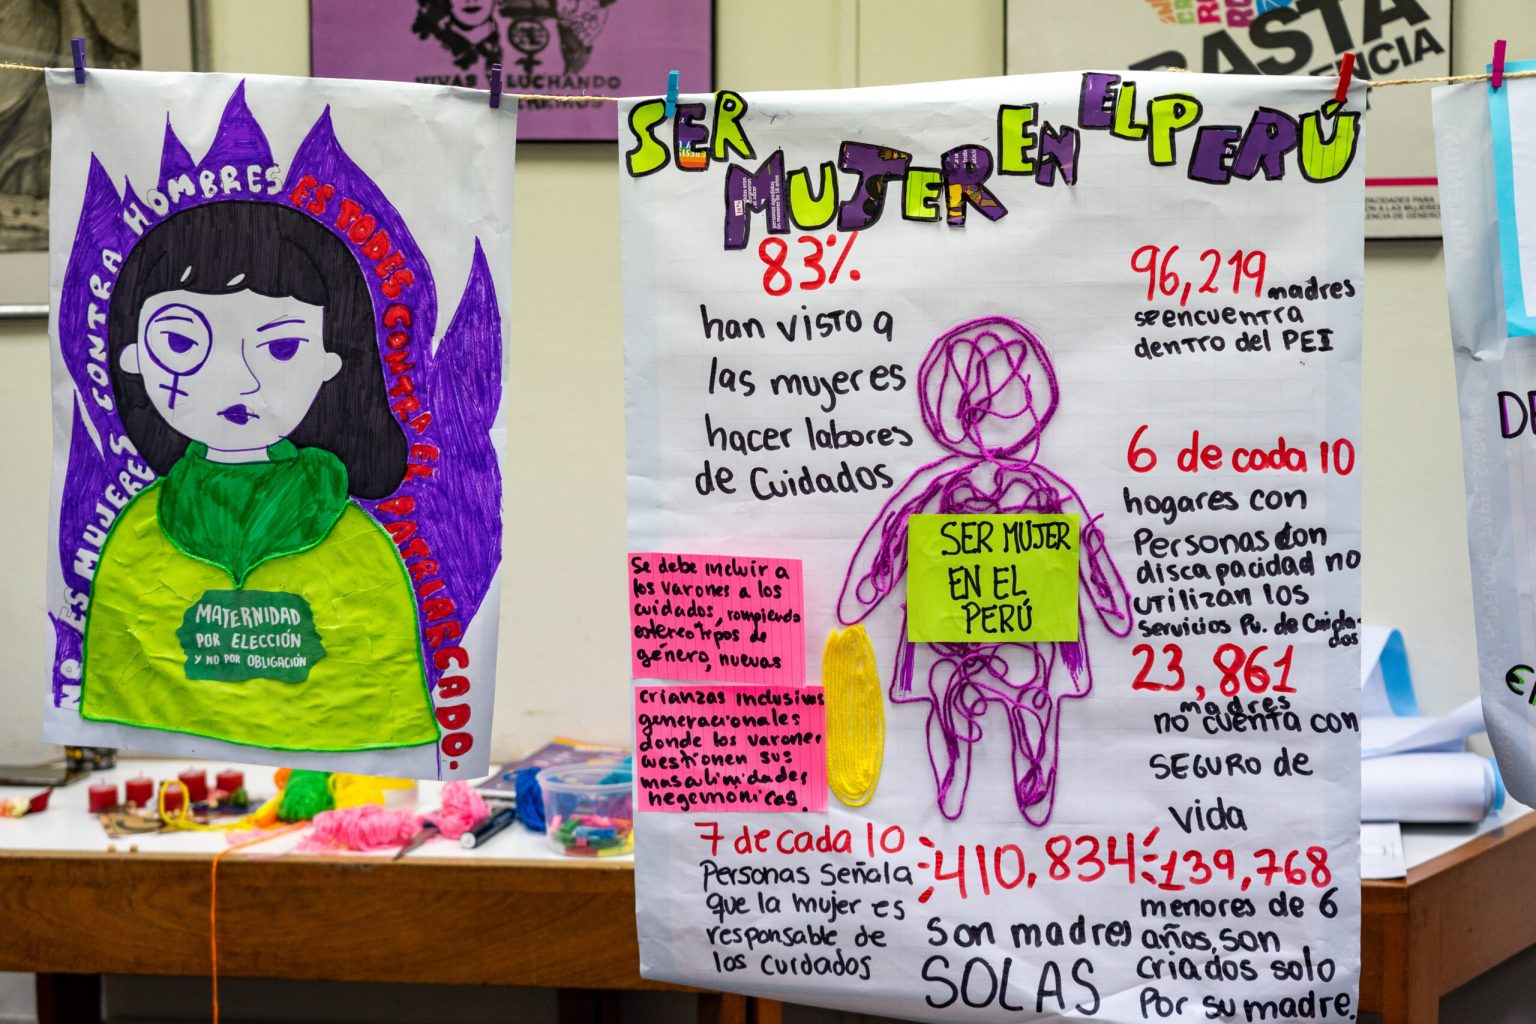 VIVAS Y LUCHANDO
BASTA
NO ES MUJERES CONTRA HOMBRES ES TODES CONTRA EL PATRIARCADO.
MATERNIDAD
POR ELECCIÓN
Y NO POR OBLIGACIÓN
SER MUJER EN EL PERÚ
83%
han visto a
las mujeres
hacer labores
de Cuidados
96,219 madres
se encuentra
dentro del PEI
6 de cada 10
hogares con
Personas con
discapacidad no
utilizan los
Servicios Pu. de Cuida-
dos
23,861
madres
no cuenta con
SEGURO de
vida
SER MUJER
EN EL
PERÚ
Se debe incluir a
los varones a los
cuidados, rompiendo
estereotipos de
género, nuevas
crianzas inclusivas
generacionales
donde los varones
cuestionen sus
masculinidades
hegemónicas.
7 de cada 10
Personas Señala
que la mujer es
responsable de
los cuidados
410,834
son madres
SOLAS
139,768
menores de 6
años, son
criados solo
Por su madre.